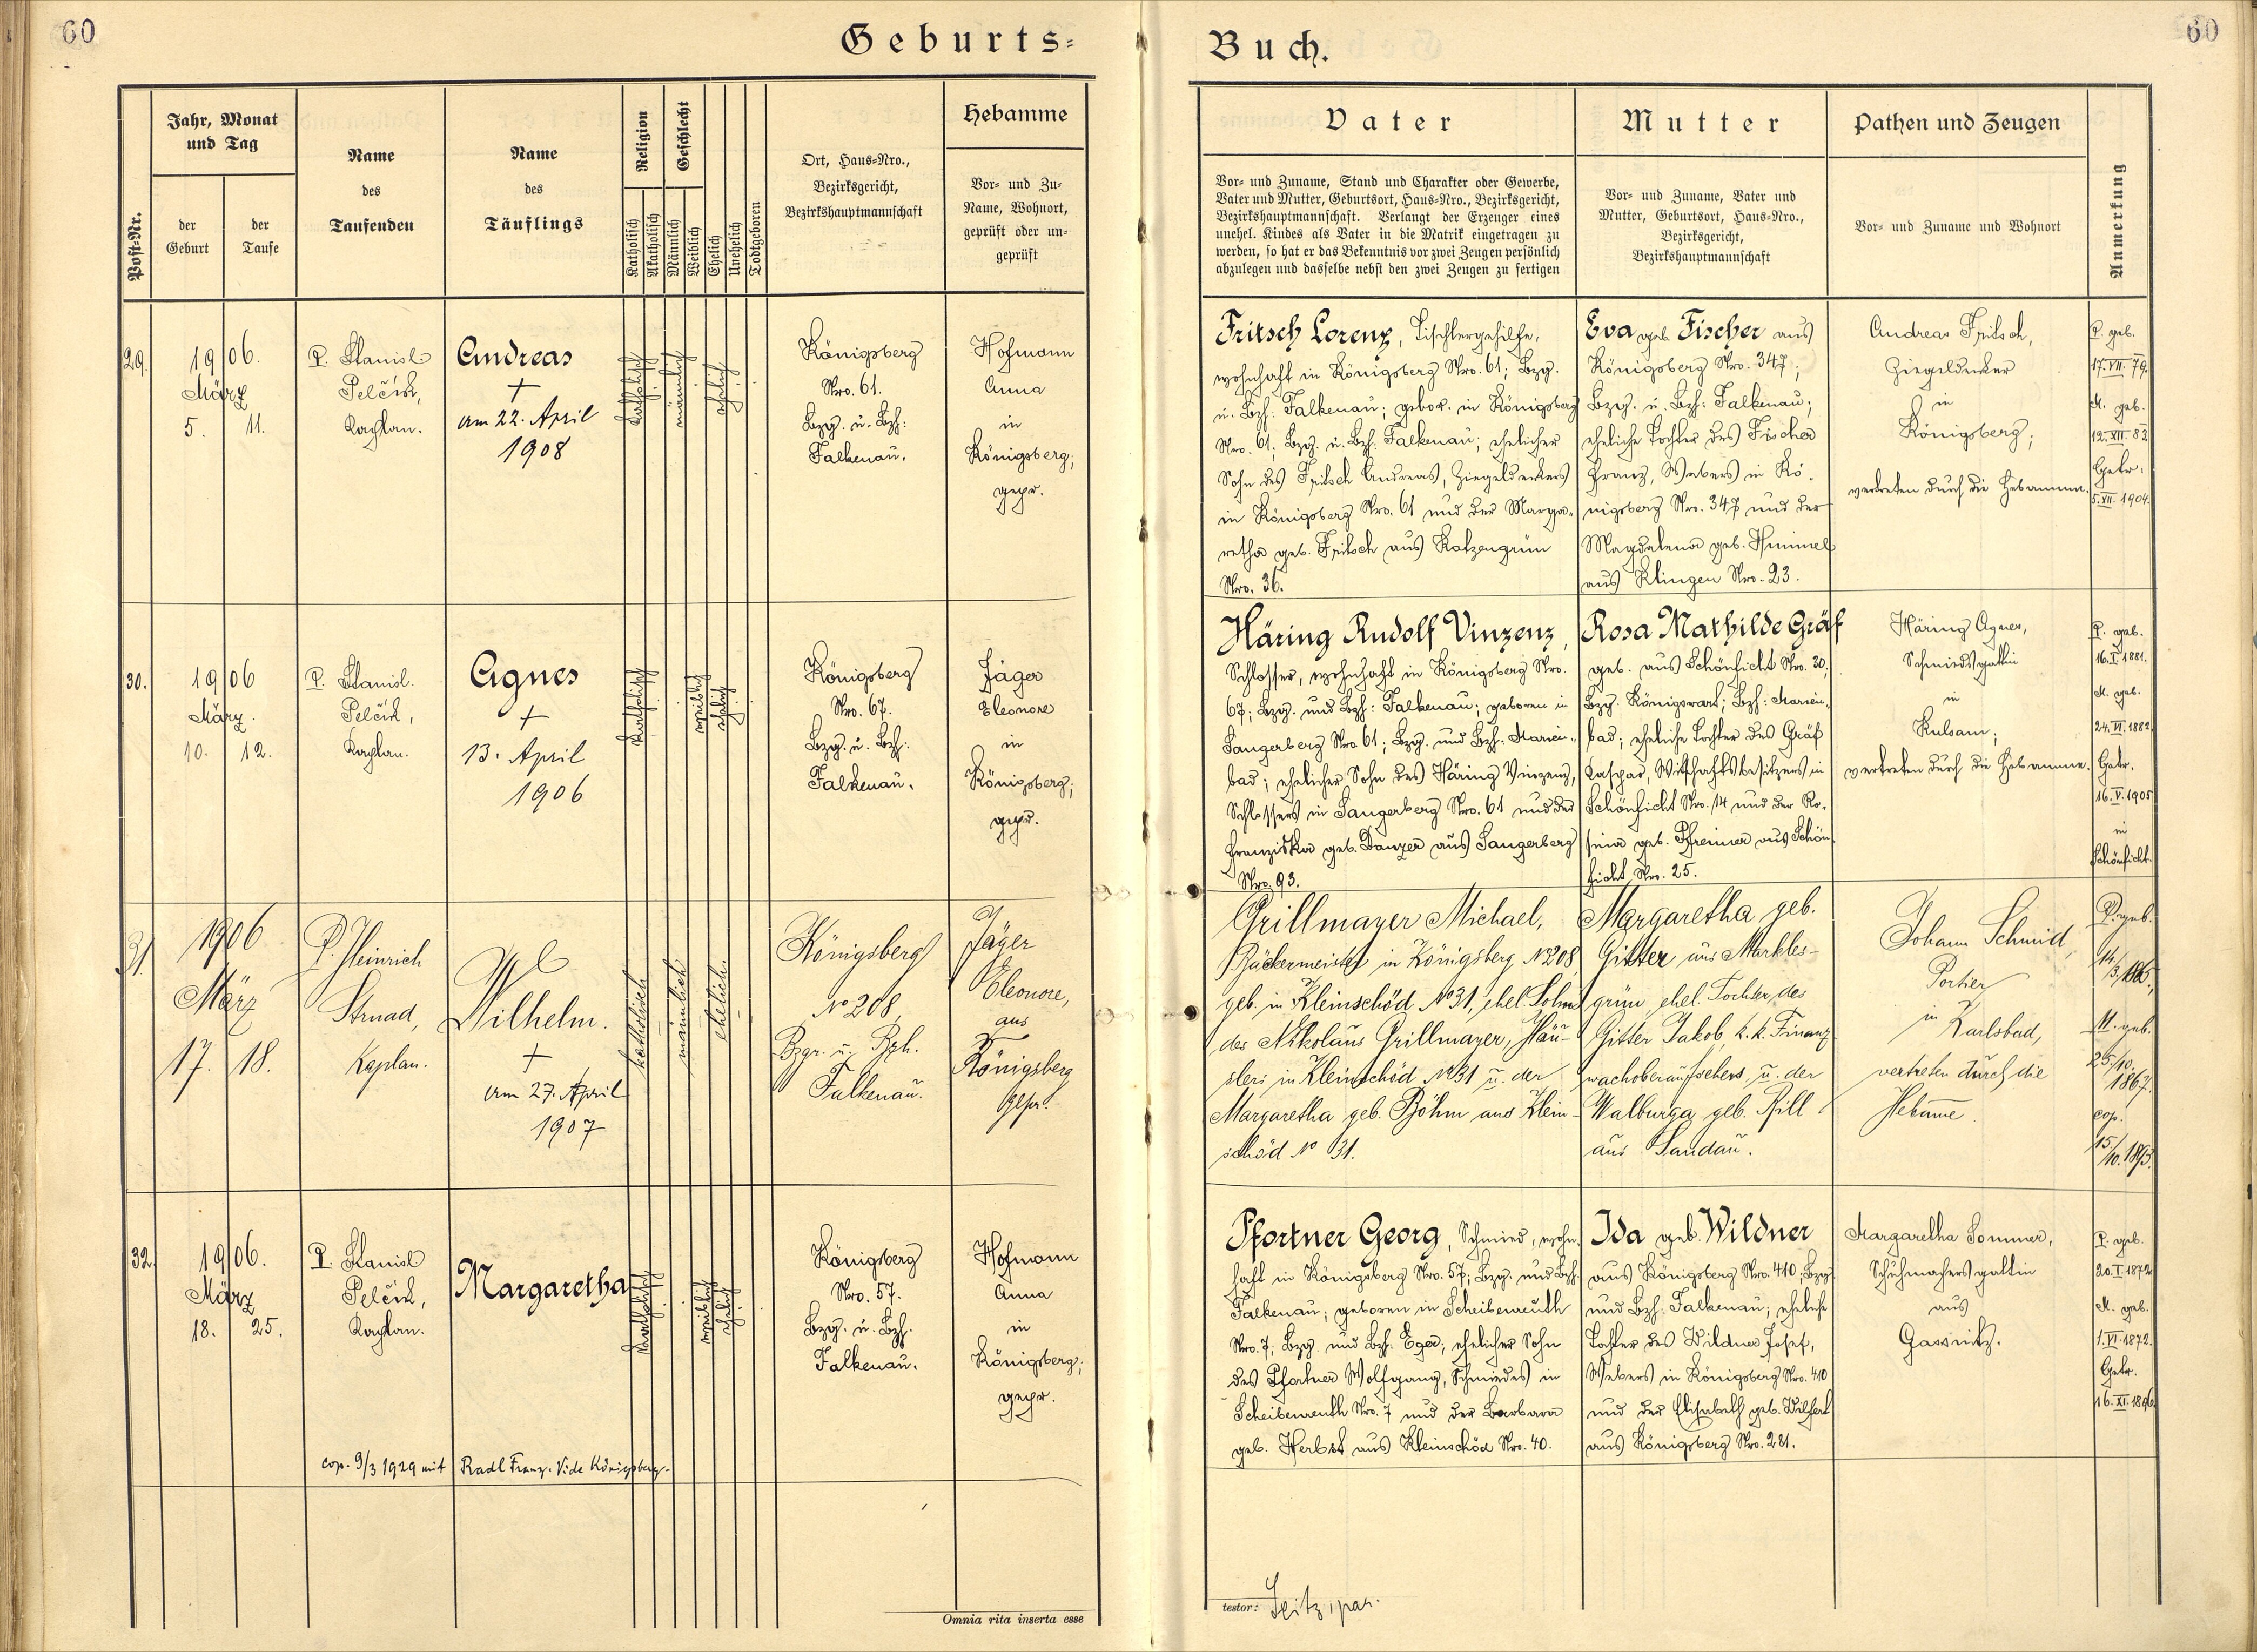 60
Geburts=
Post-Nr.
Jahr, Monat
und Tag
der
Geburt
der
Taufe
Name
des
Taufenden
Name
des
Täuflings
Religion
Katholisch
Akatholisch
Geschlecht
Männlich
Weiblich
Ehelich
Unehelich
Todtgeboren
Ort, Haus-Nro.,
Bezirksgericht,
Bezirkshauptmannschaft
Hebamme
Vor- und Zu-
Name, Wohnort,
geprüft oder un-
geprüft
29.
1906.
März
5. 11.
P. Stanisl
Pelčik,
Kaplan.
Andreas
+
am 22. April
1908
katholisch
männlich
ehelich
Königsberg
Nro. 61.
Bzg. u. Bzh:
Falkenau.
Hofmann
Anna
in
Königsberg;
gepr.
30.
1906
März.
10. 12.
P. Stanisl.
Pelčik,
Kaplan.
Agnes
+
13. April
1906
katholisch
weiblich
ehelich
Königsberg
Nro. 67.
Bzg. u. Bzh:
Falkenau.
Jäger
Eleonore
in
Königsberg;
gepr.
31.
1906
März
17. 18.
P. Heinrich
Strnad,
Kaplan.
Wilhelm.
+
am 27. April
1907
katholisch
männlich
ehelich.
Königsberg
No 208,
Bzgr. u. Bzh.
Falkenau.
Jäger
Eleonore,
aus
Königsberg
gepr.
32.
1906.
März
18. 25.
P. Stanisl
Pelčik,
Kaplan.
Margaretha
katholisch
weiblich
ehelich
Königsberg
Nro. 57.
Bzg. u. Bzh.
Falkenau.
Hofmann
Anna
in
Königsberg;
gepr.
cop. 9/3 1929 mit Radl Franz. Vide Königsberg.
Omnia rita inserta esse
Buch.
60
Vater
Vor- und Zuname, Stand und Charakter oder Gewerbe,
Vater und Mutter, Geburtsort, Haus-Nro., Bezirksgericht,
Bezirkshauptmannschaft. Verlangt der Erzeuger eines
unehel. Kindes als Vater in die Matrik eingetragen zu
werden, so hat er das Bekenntnis vor zwei Zeugen persönlich
abzulegen und dasselbe nebst den zwei Zeugen zu fertigen
Mutter
Vor- und Zuname, Vater und
Mutter, Geburtsort, Haus-Nro.,
Bezirksgericht,
Bezirkshauptmannschaft
Pathen und Zeugen
Vor- und Zuname und Wohnort
Anmerkung
Fritsch Lorenz, Tischlergehilfe,
wohnhaft in Königsberg Nro. 61; Bzg.
u. Bzh: Falkenau; gebor. in Königsberg
Nro. 61; Bzg. u. Bzh: Falkenau; ehelicher
Sohn des Fritsch Andreas, Ziegeldeckers
in Königsberg Nro. 61 und der Marga-
retha geb. Fritsch aus Katzengrün
Nro. 36.
Eva geb. Fischer aus
Königsberg Nro. 347;
Bzg. u. Bzh: Falkenau;
eheliche Tochter des Fischer
Franz, Webers in Kö-
nigsberg Nro. 347 und der
Magdalena geb. Himmel
aus Klingen Nro. 23.
Andreas Fritsch,
Ziegeldecker
in
Königsberg;
vertreten durch die Hebamme.
P. geb.
17.VII.79.
M. geb.
12.XII.83
Getr.
5.XII.1904.
Häring Rudolf Vinzenz,
Schlosser, wohnhaft in Königsberg Nro.
67; Bzg. und Bzh: Falkenau; geboren in
Sangerberg Nro. 61; Bzg. und Bzh: Marien-
bad; ehelicher Sohn des Häring Vinzenz,
Schlossers in Sangerberg Nro. 61 und der
Franziska geb. Danzer aus Sangerberg
Nro. 93.
Rosa Mathilde Gräf
geb. aus Schönficht Nro. 30;
Bzg. Königswart; Bzh: Marien-
bad; eheliche Tochter des Gräf
Caspar, Wirthschaftsbesitzers in
Schönficht Nro. 14 und der Ro-
sina geb. Pfreimer aus Schön-
ficht Nro. 25.
Häring Agnes,
Schmiedsgattin
in
Kulsam;
vertreten durch die Hebamme.
P. geb.
16.I.1881.
M. geb.
24.VI.1882
Getr.
16.V.1905
in
Schönficht.
Grillmayer Michael,
Bäckermeister in Königsberg No 208
geb. in Kleinschöd No 31, ehel. Sohn
des Nikolaus Grillmayer, Häu-
slers in Kleinschöd No 31 u. der
Margaretha geb. Böhm aus Klein-
schöd No 31.
Margaretha geb.
Gitter aus Markles-
grün, ehel. Tochter des
Gitter Jakob, k. k. Finanz
wachoberaufsehers, u. der
Walburga geb. Pill
aus Sandau.
Johann Schmid,
Portier
in
Karlsbad,
vertreten durch die
Hebamme.
P. geb.
M. geb.
25/10.
1867.
cop.
15/10.1893.
Pfortner Georg, Schmied, wohn-
haft in Königsberg Nro. 57; Bzg. und Bzh.
Falkenau; geboren in Scheibenreuth
Nro. 7; Bzg. und Bzh: Eger; ehelicher Sohn
des Pfortner Wolfgang, Schmiedes in
Scheibenreuth Nro. 7 und der Barbara
geb. Herbst aus Kleinschöd Nro. 40.
Ida geb. Wildner
aus Königsberg Nro. 410; Bzg.
und Bzh: Falkenau; eheliche
Tochter des Wildner Josef,
Webers in Königsberg Nro. 410
und der Elisabeth geb. Wilfert
aus Königsberg Nro. 281.
Margaretha Sommer,
Schuhmachersgattin
aus
Gassnitz.
P. geb.
20.I.1872
M. geb.
1.VI.1872.
Getr.
16.XI.1896.
testor: